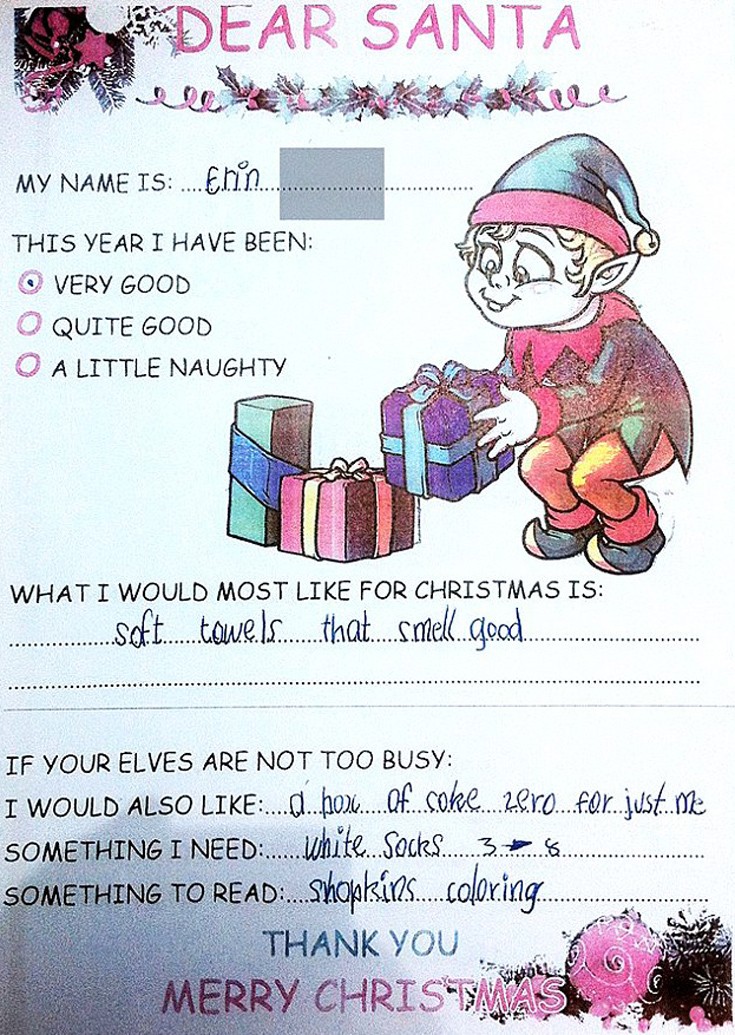 DEAR SANTA
MY NAME IS: Erin
THIS YEAR I HAVE BEEN:
VERY GOOD
QUITE GOOD
A LITTLE NAUGHTY
WHAT I WOULD MOST LIKE FOR CHRISTMAS IS:
soft towels that smell good
IF YOUR ELVES ARE NOT TOO BUSY:
I WOULD ALSO LIKE: a box of coke zero for just me
SOMETHING I NEED: white socks 3 → 8
SOMETHING TO READ: shopkins coloring
THANK YOU
MERRY CHRISTMAS